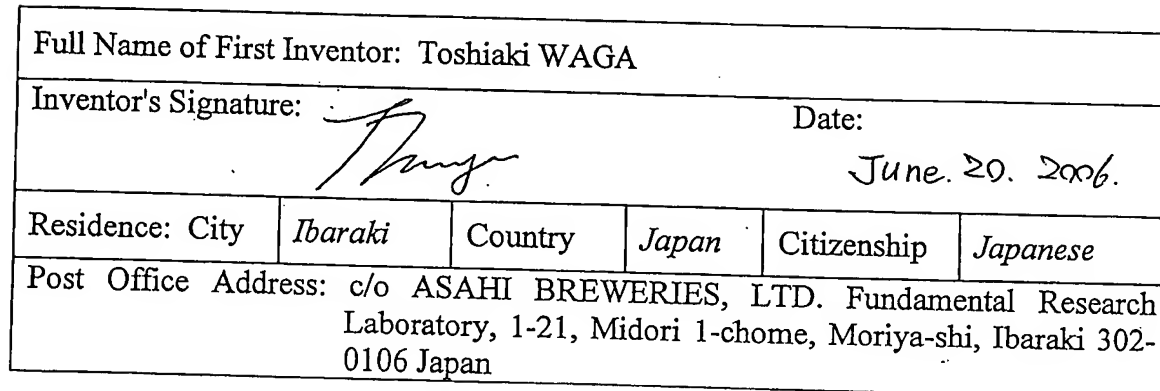 Full Name of First Inventor: Toshiaki WAGA
Inventor's Signature: Date:
June. 20. 2006.
Residence: City Ibaraki Country Japan Citizenship Japanese
Post Office Address: c/o ASAHI BREWERIES, LTD. Fundamental Research
Laboratory, 1-21, Midori 1-chome, Moriya-shi, Ibaraki 302-
0106 Japan